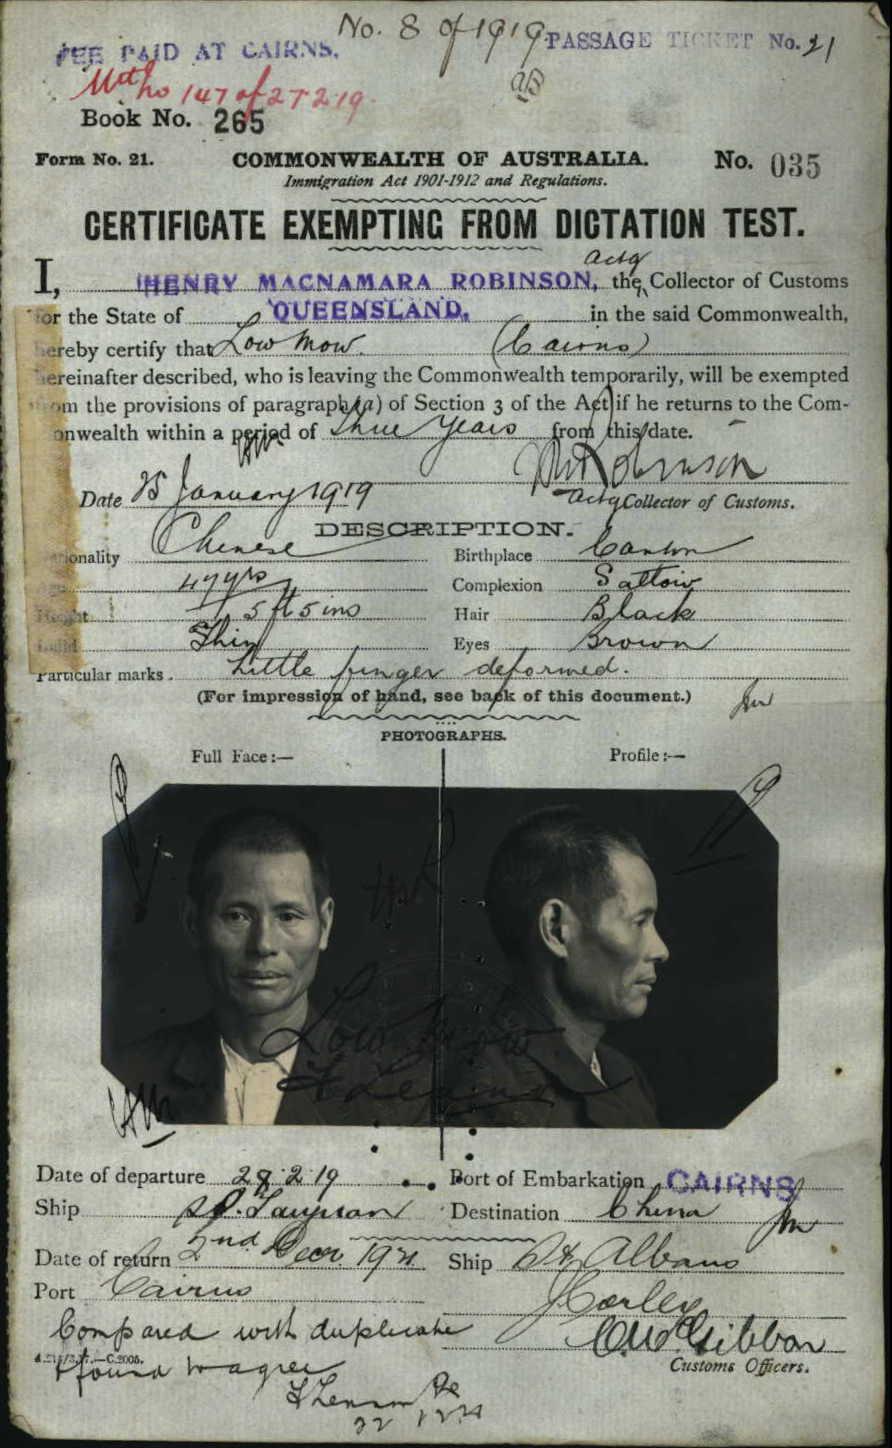 No. 8 of 1919
FEE PAID AT CAIRNS.
PASSAGE TICKET No. 21
147 of 27 2 19.
Book No. 265
Form No. 21.
COMMONWEALTH OF AUSTRALIA.
No. 035
Immigration Act 1901-1912 and Regulations.
CERTIFICATE EXEMPTING FROM DICTATION TEST.
I, HENRY MACNAMARA ROBINSON, the Actg Collector of Customs
for the State of QUEENSLAND, in the said Commonwealth,
hereby certify that Low Mow. (Cairns)
hereinafter described, who is leaving the Commonwealth temporarily, will be exempted
from the provisions of paragraph (a) of Section 3 of the Act if he returns to the Com-
monwealth within a period of Three Years from this date.
HMRobinson
Date 25 January 1919
Actg Collector of Customs.
DESCRIPTION.
Nationality Chinese
Birthplace Canton
47 yrs
Complexion Sallow
Height 5 ft 5 ins
Hair Black
Build Thin
Eyes Brown
Particular marks. Little finger deformed.
(For impression of hand, see back of this document.)
PHOTOGRAPHS.
Full Face:—
Profile:—
HMR
Low Mow
Date of departure 28.2.19
Port of Embarkation CAIRNS
Ship SS. Taiyuan
Destination China
Date of return 2nd Decr. 1921
Ship St Albans
Port Cairns
Compared with duplicate
& found to agree
Customs Officers.